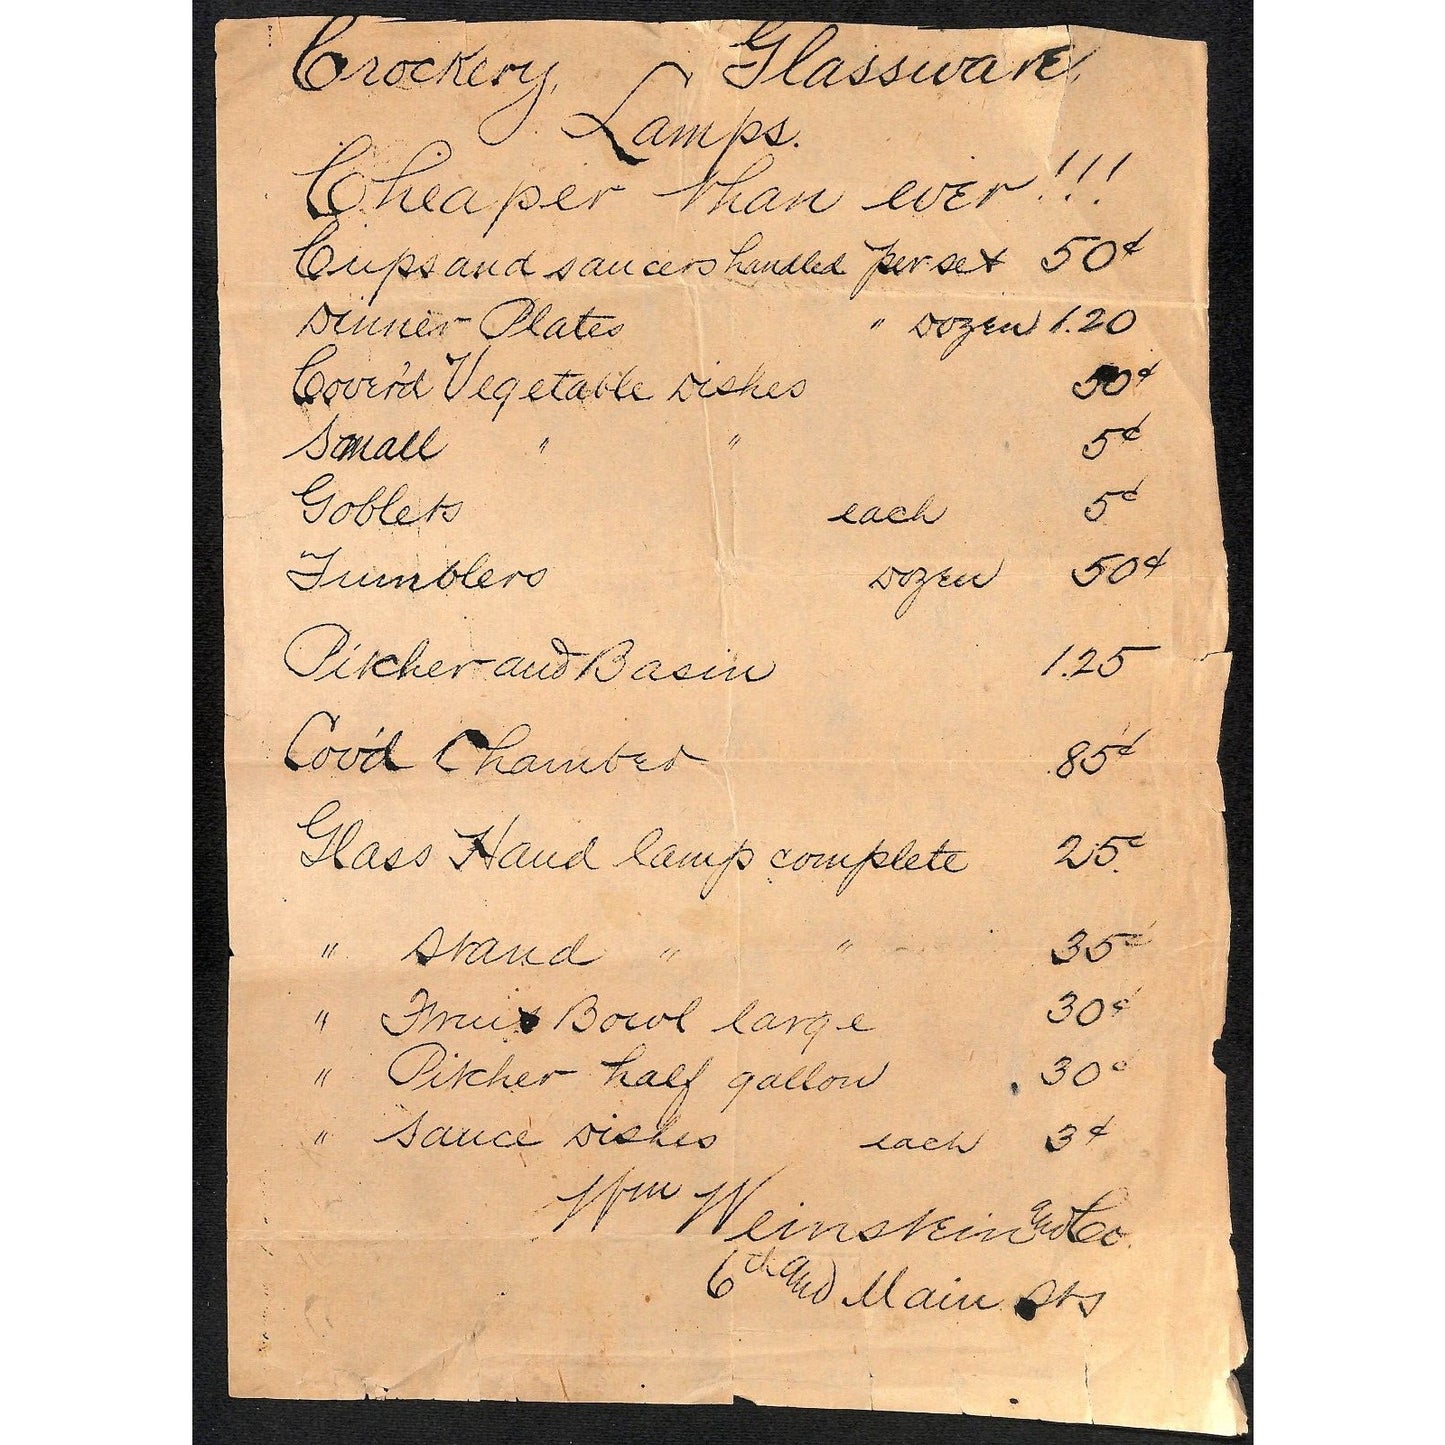 Crockery, Glassware,
Lamps.
Cheaper than ever!!!
Cups and saucers handled per set 50¢
Dinner Plates " Dozen 1.20
Cover'd Vegetable Dishes 50¢
Small " " 5¢
Goblets each 5¢
Tumblers Dozen 50¢
Pitcher and Basin 1.25
Cov'd Chamber .85¢
Glass Hand lamp complete 25¢
" Stand " " 35¢
" Fruit Bowl large 30¢
" Pitcher half gallon 30¢
" Sauce Dishes each 3¢
Wm Weinstein and Co.
6th and Main Sts